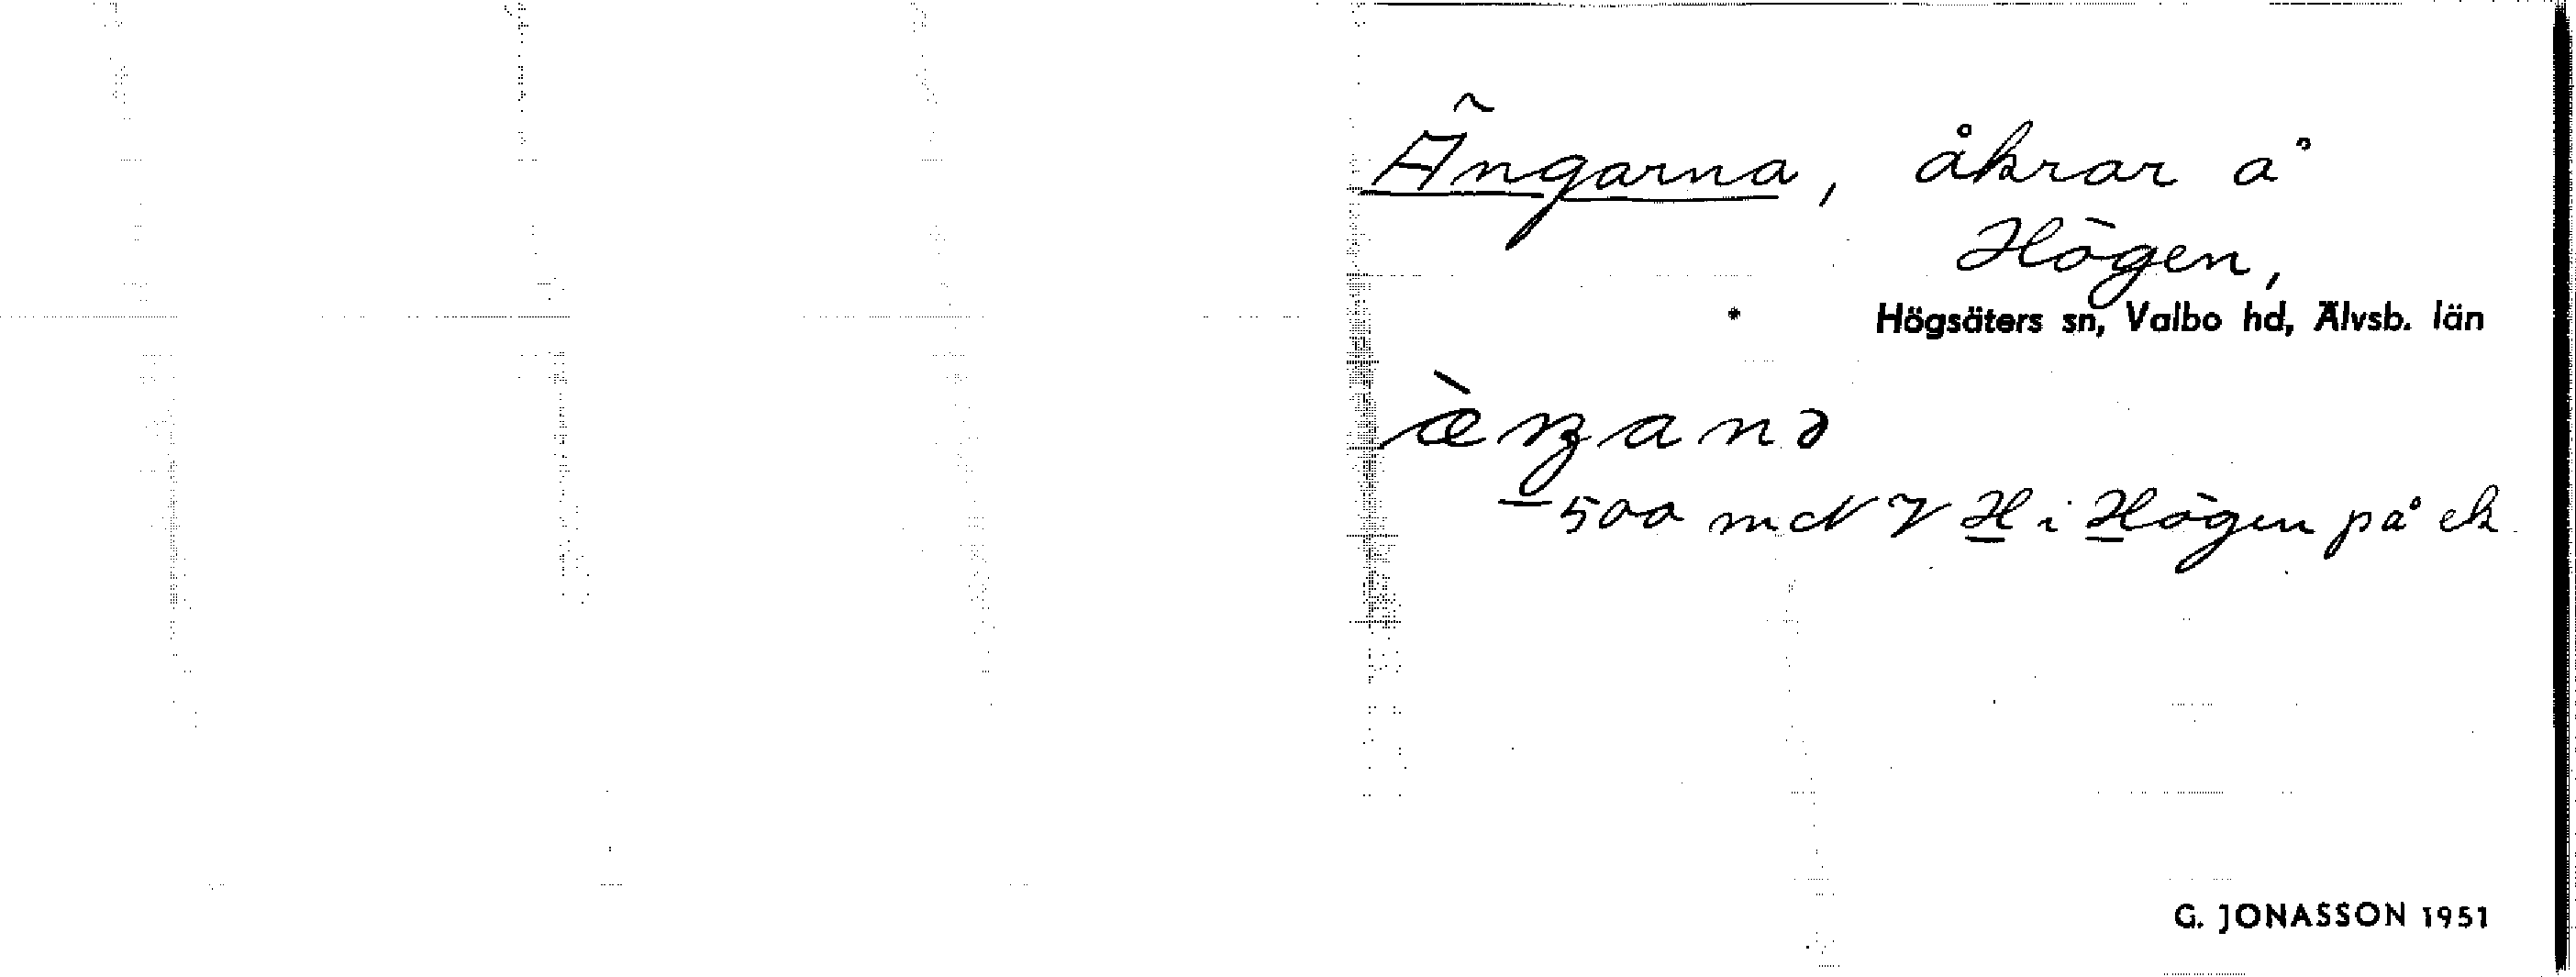 Ängarna, åkrar å
Högen,
Högsäters sn, Valbo hd, Älvsb. län
æ̀ŋanə
500 m NV H i Högen på ek.
G. JONASSON 1951